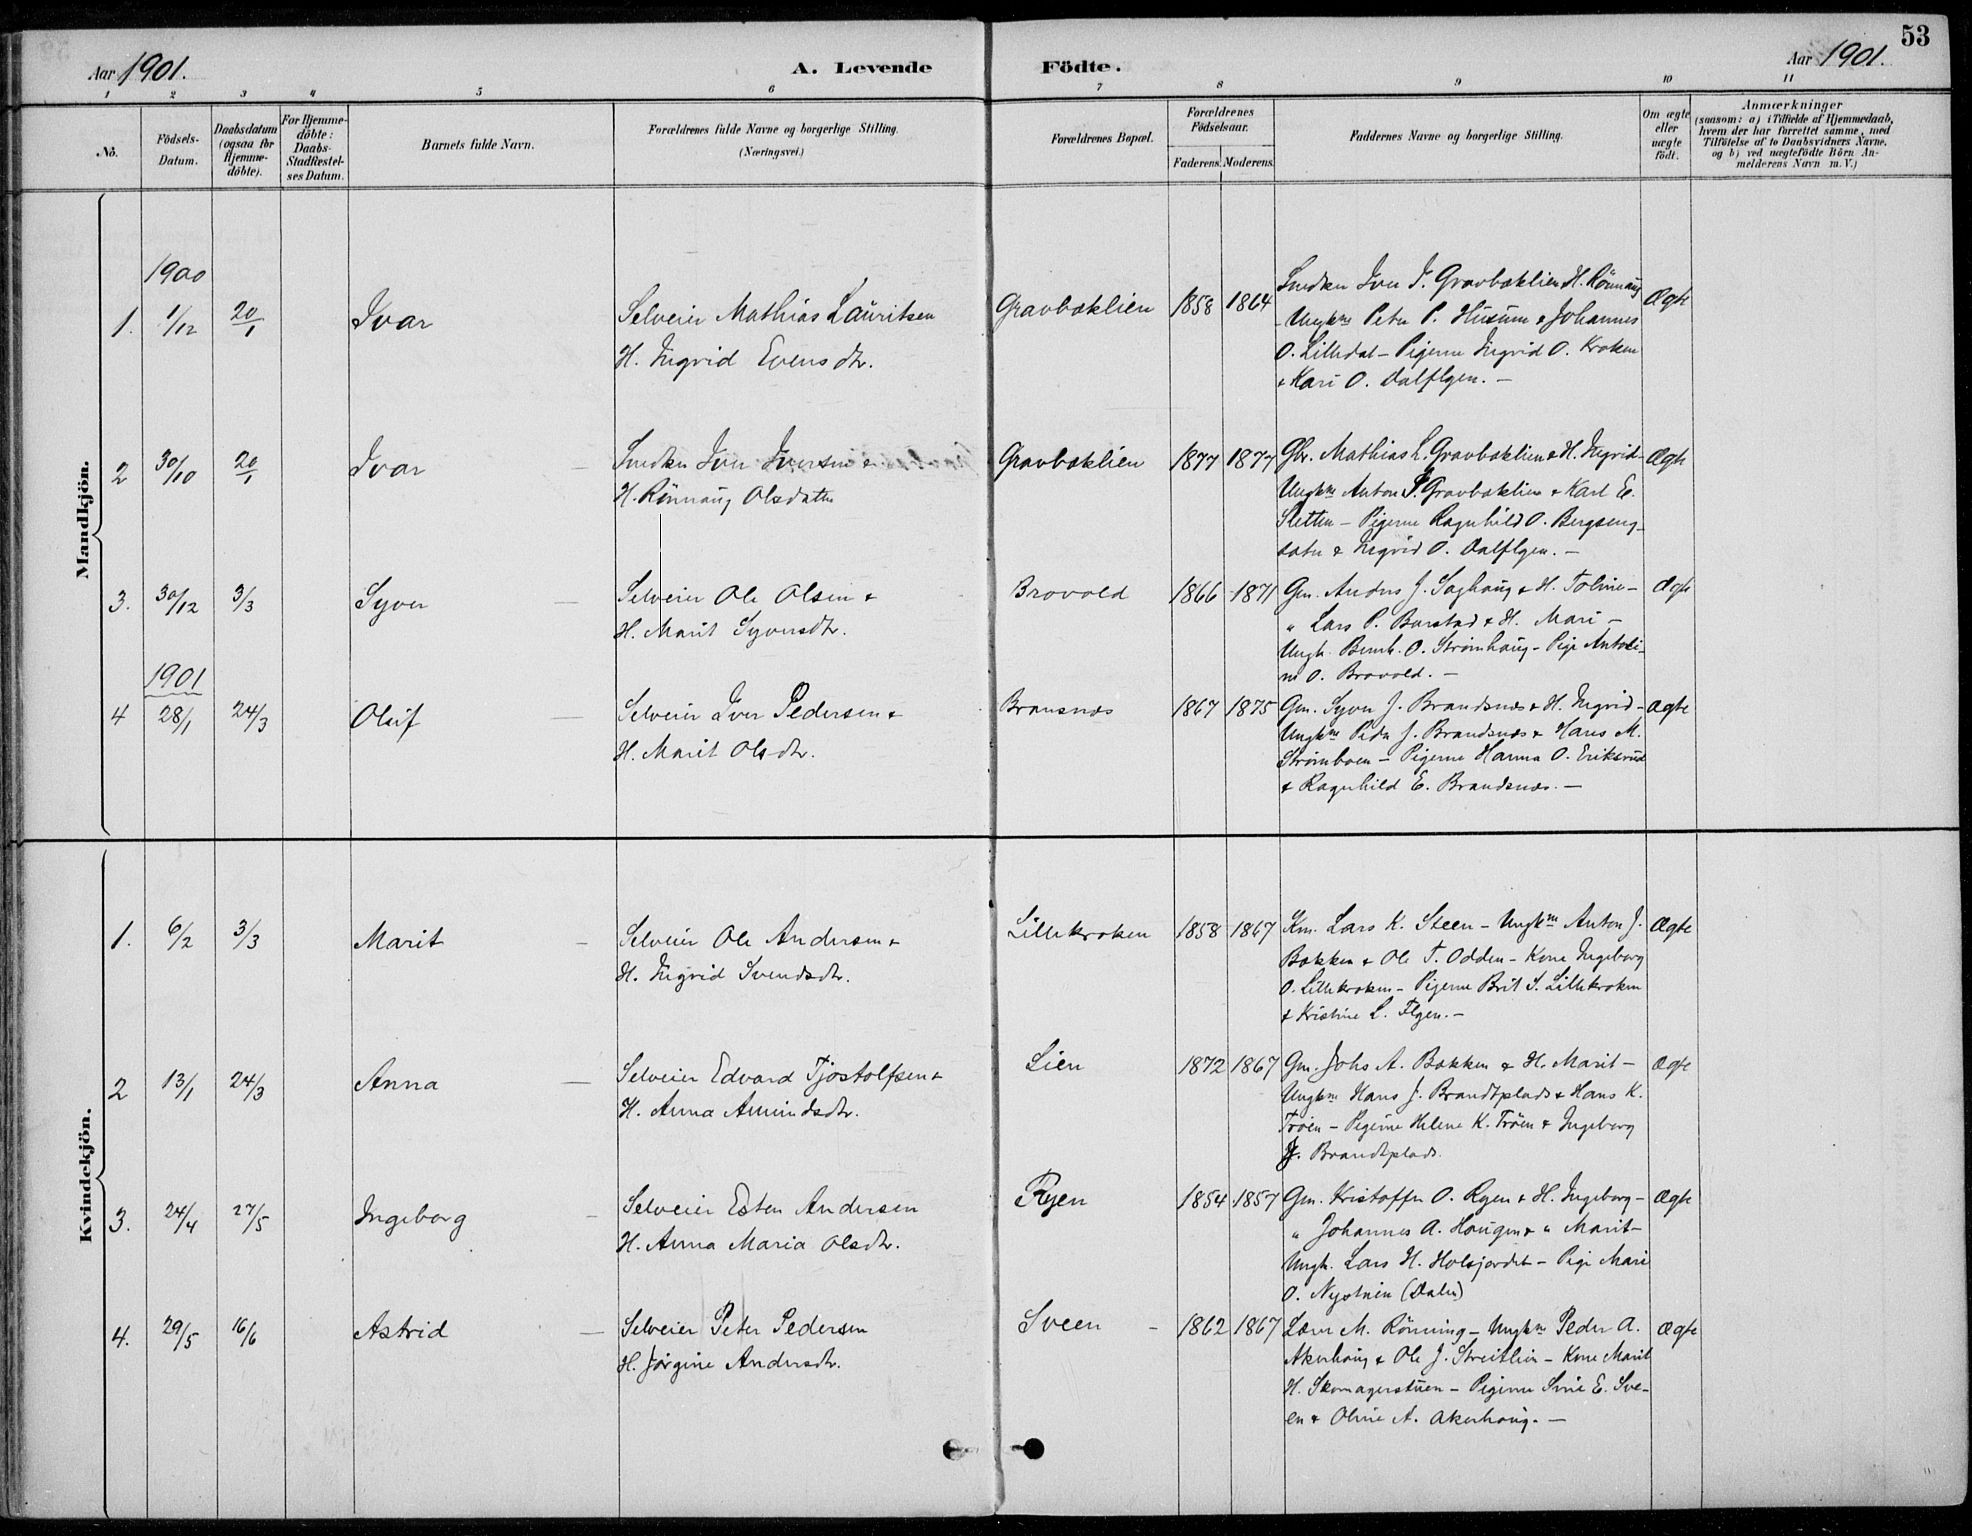 53
Aar 1901.
A. Levende Födte.
Aar 1901.
1 2 3 4 5 6 7 8 9 10 11
No.
Födsels-
Datum.
Daabsdatum
(ogsaa for
Hjemme-
döbte).
For Hjemme-
döbte:
Daabs-
Stadfæstel-
ses Datum.
Barnets fulde Navn.
Forældrenes fulde Navne og borgerlige Stilling.
(Næringsvei.)
Forældrenes Bopæl.
Forældrenes
Födselsaar.
Faderens. Moderens.
Faddernes Navne og borgerlige Stilling.
Om ægte
eller
uægte
födt.
Anmærkninger
(saasom: a) i Tilfælde af Hjemmedaab,
hvem der har forrettet samme, med
Tilföielse af to Daabsvidners Navne,
og b) ved uægtefödte Börn An-
melderens Navn m. V.)
Mandkjön.
1900
1. 1/12 20/1 Ivar
Selveier Mathias Lauritsen
H. Ingrid Evensdtr.
Gravbæklien 1858 1864
Snedker Iver I. Gravbæklien H. Rönnaug
- Ungkm Peter P. Husum & Johannes
O. Lilledal - Pigerne Ingrid O. Kroken
& Kari O. Dalflgen. -
Ægte
2 30/10 20/1 Ivar
Snedker Iver Iversen &
H. Rönnaug Olsdatter
Gravbæklien 1877 1877
Gbr. Mathias L. Gravbæklien & H. Ingrid-
Ungkm Anton I. Gravbæklien & Karl E.
Sletten - Pigerne Ragnhild O. Bergseng-
sæter & Ingrid O. Dalflgen. -
Ægte
3. 30/12 3/3 Syver
Selveier Ole Olsen &
H. Marit Syversdtr.
Brovold 1866 1871
Gm. Anders J. Saghaug & H. Toline -
" Lars P. Barstad & H. Mari -
Ungk. Bernh. O. Strömhaug - Pige Antoni-
ne O. Brovold. -
Ægte
1901
4 28/1 24/3 Oluf
Selveier Iver Pedersen &
H. Marit Olsdtr.
Bransnæs 1867 1875
Gm. Syver J. Brandsnæs & H. Ingrid -
Ungkm Peder J. Brandsnæs & Hans M.
Strömboen - Pigerne Hanna O. Eriksrud
& Ragnhild E. Brandsnæs. -
Ægte
Kvindekjön.
1. 6/2 3/3 Marit
Selveier Ole Andersen &
H. Ingrid Svendsdtr.
Lillekroken 1858 1867
Km. Lars K. Steen - Ungkm Anton J.
Bakken & Ole T. Odden - Kone Ingeborg
O. Lillekroken - Pigerne Brit S. Lillekroken
& Kristine L. Flgen. -
Ægte
2 13/1 24/3 Anna
Selveier Edvard Tjostolfsen &
H. Anna Amundsdtr.
Lien 1872 1867
Gm. Johs A. Bakken & H. Marit -
Ungkm Hans J. Brandtplads & Hans K.
Tröen - Pigerne Helene K. Tröen & Ingeborg
J. Brandtplads.
Ægte
3. 24/4 27/5 Ingeborg
Selveier Esten Andersen
H. Anna Maria Olsdtr.
Ryen 1854 1857
Gm. Kristoffer O. Ryen & H. Ingeborg -
" Johannes A. Haugen & " Marit -
Ungk. Lars H. Holsjordet - Pige Mari
O. Nystuen (Dalen)
Ægte
4. 29/5 16/6 Astrid
Selveier Peter Pedersen
H. Jörgine Andersdtr.
Sveen - 1862 1867
Lærer M. Rönning - Ungkm Peder A.
Akerhaug & Ole J. Streitlien - Kone Marit
H. Skomagerstuen - Pigerne Sine E. Sve-
en & Oline A. Akerhaug. -
Ægte